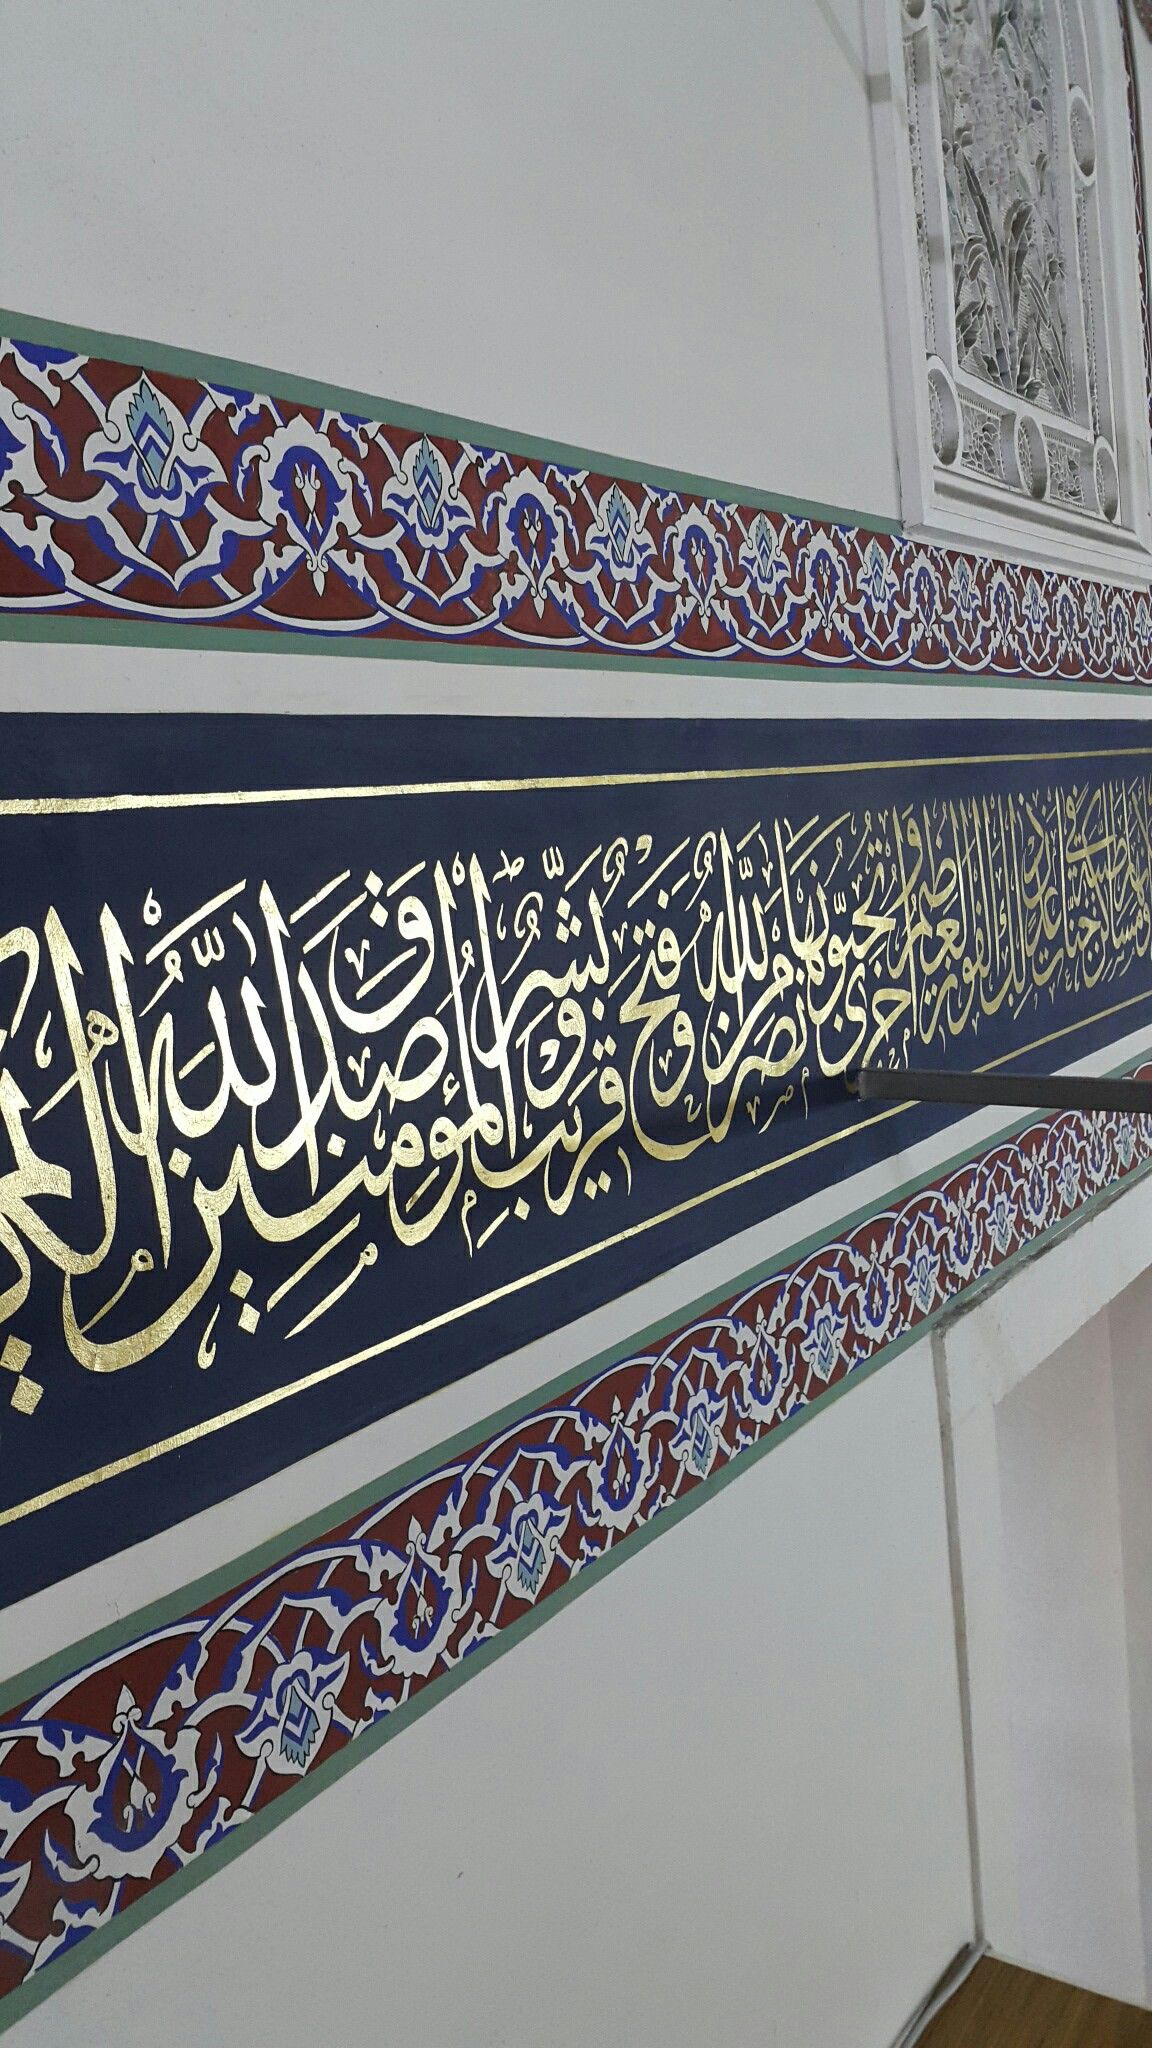 الأنهار ومساكن طيبة في جنات عدن ذلك الفوز العظيم وأخرى تحبونها نصر من الله وفتح قريب وبشر المؤمنين صدق الله